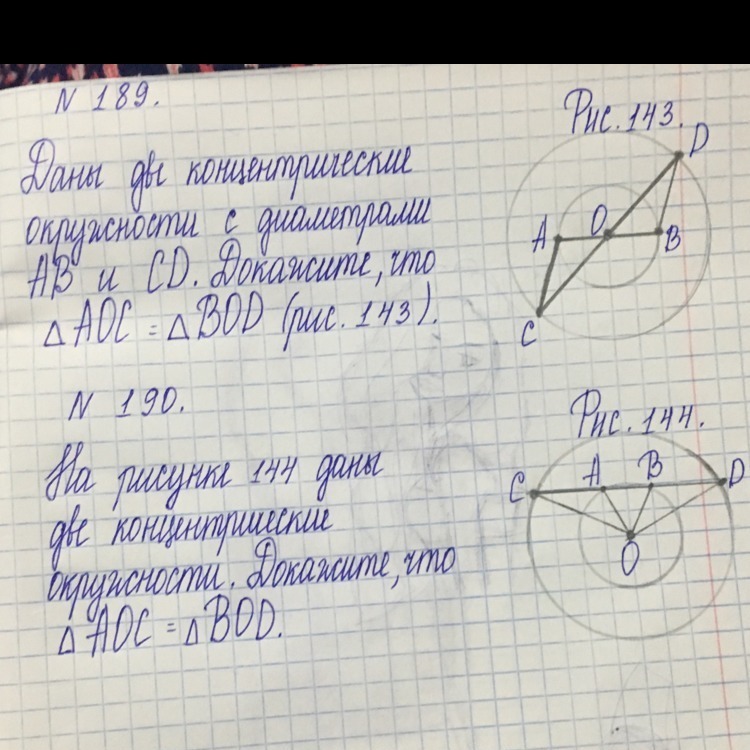 N 189.
Рис. 143.
Даны две концентрические
окружности с диаметрами
AB и CD. Докажите, что
△ AOC = △ BOD (рис. 143).
D
A
O
B
C
N 190.
Рис. 144.
На рисунке 144 даны
две концентрические
окружности. Докажите, что
△ AOC = △ BOD.
C
A
B
D
O